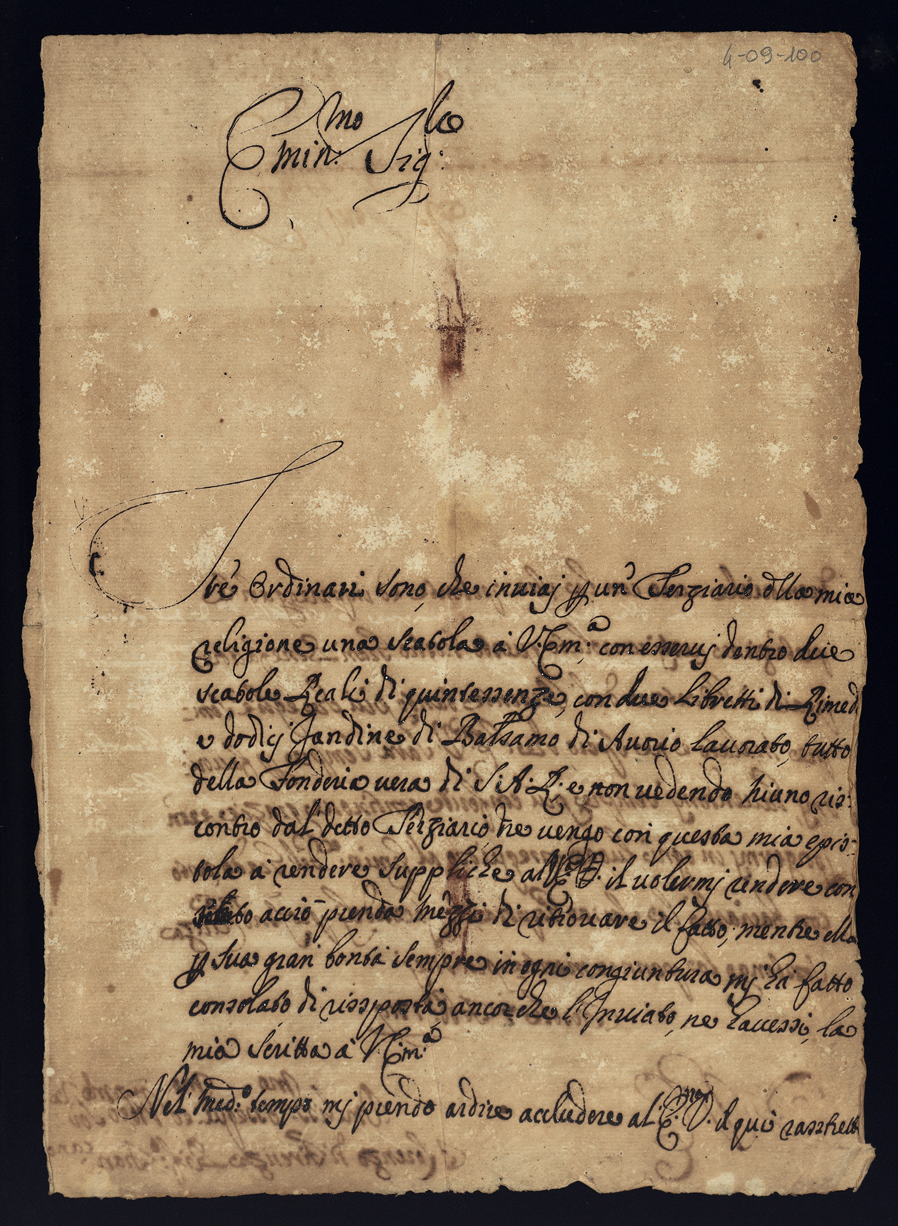 4-09-100
Emin:mo Sig:re
Tré Ordinari sono, che inviaj p un' Terziario dlla mia
religione una scatola à V. Em:a con esservj dentro due
scatole Reali di quintessenze, con due Libretti di Rimed
e dodicj Jandine di Balsamo di Avorio lavorato, tutto
della Fonderia vera di S. A. R. e non vedendo hiuno ris:
contro dal' detto Terziario, ne vengo con questa mia epis:
tola à rendere suppliche al' E. V. il volermj rendere con
acciò prenda mezzi di ritrovare il fatto, mentre ella
p sua gran bontà sempre in ogni congiuntura mj hà fatto
consolato di rissposta ancorche l'Inviato, ne havessi, la
mia scritta à V. Em:a
Nel' med:o tempo mj prendo ardire accludere al' E. V. il qui